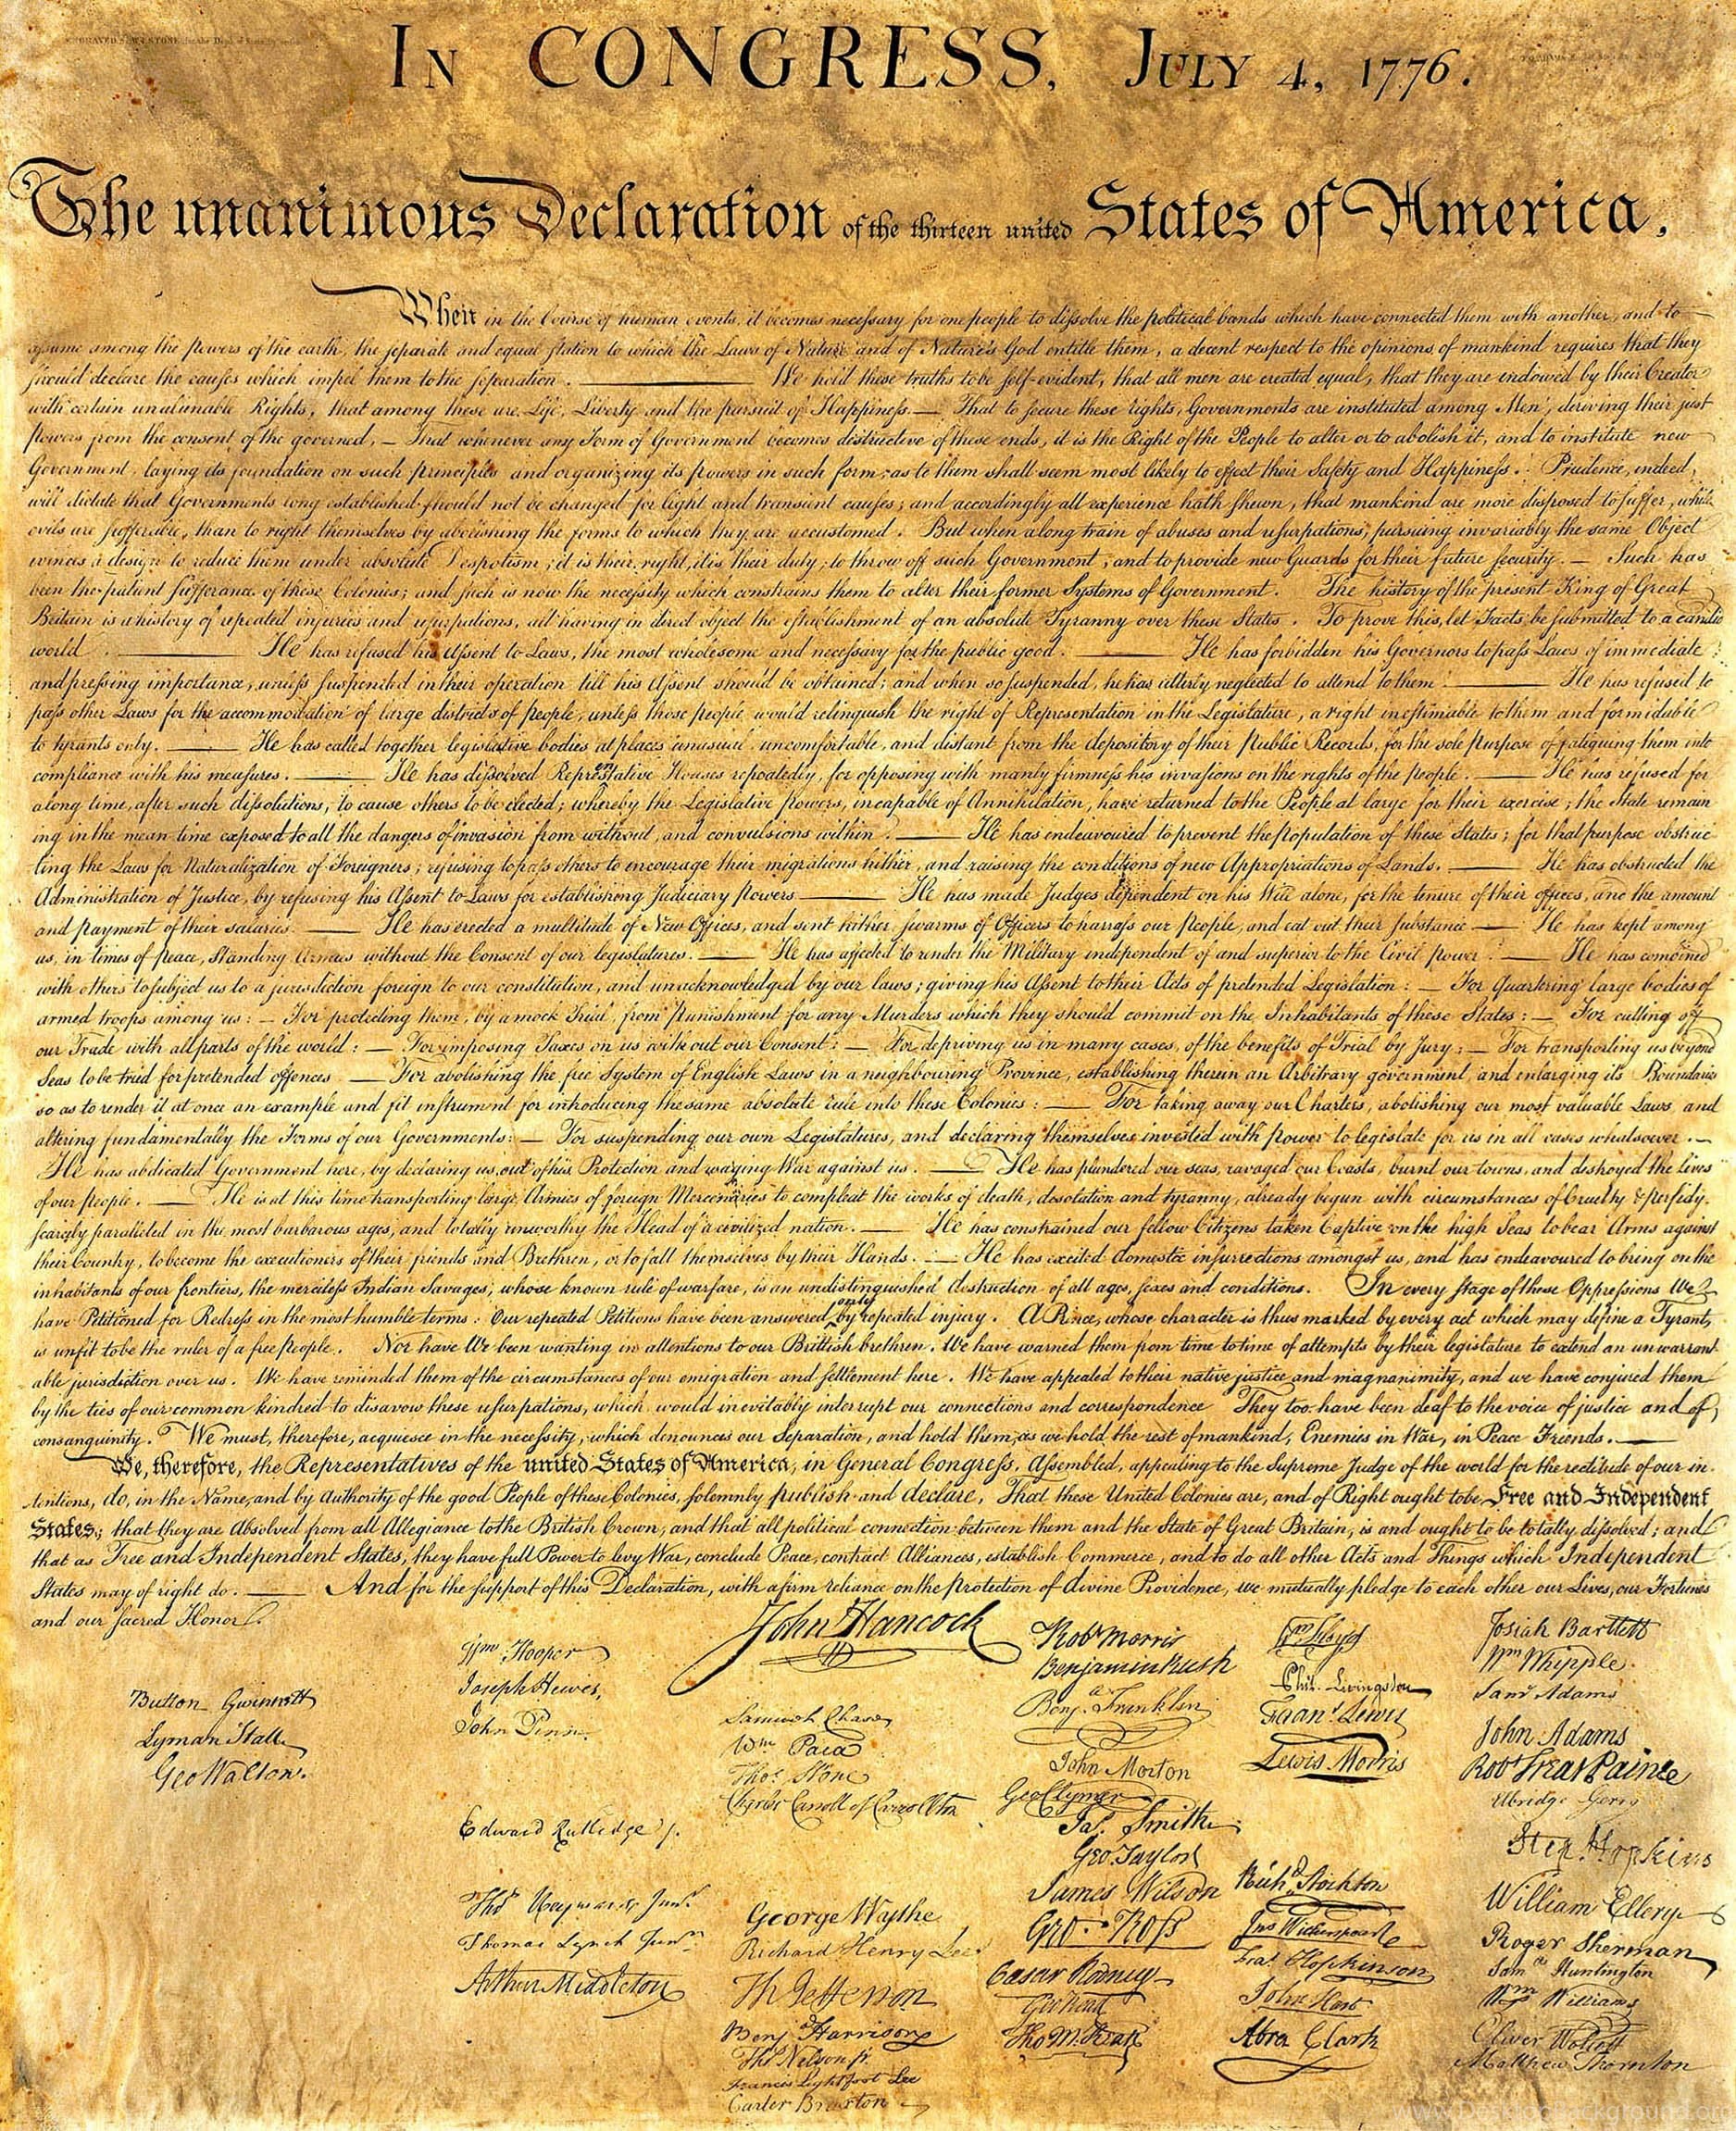 IN CONGRESS, JULY 4, 1776.
The unanimous Declaration of the thirteen united States of America,
When in the Course of human events, it becomes necessary for one people to dissolve the political bands which have connected them with another, and to
assume among the powers of the earth, the separate and equal station to which the Laws of Nature and of Nature's God entitle them, a decent respect to the opinions of mankind requires that they
should declare the causes which impel them to the separation. We hold these truths to be self-evident, that all men are created equal, that they are endowed by their Creator
with certain unalienable Rights, that among these are Life, Liberty and the pursuit of Happiness.— That to secure these rights, Governments are instituted among Men, deriving their just
powers from the consent of the governed, — That whenever any Form of Government becomes destructive of these ends, it is the Right of the People to alter or to abolish it, and to institute new
Government, laying its foundation on such principles and organizing its powers in such form, as to them shall seem most likely to effect their Safety and Happiness. Prudence, indeed,
will dictate that Governments long established should not be changed for light and transient causes; and accordingly all experience hath shewn, that mankind are more disposed to suffer, while
evils are sufferable, than to right themselves by abolishing the forms to which they are accustomed. But when a long train of abuses and usurpations, pursuing invariably the same Object
evinces a design to reduce them under absolute Despotism, it is their right, it is their duty, to throw off such Government, and to provide new Guards for their future security. — Such has
been the patient sufferance of these Colonies; and such is now the necessity which constrains them to alter their former Systems of Government. The history of the present King of Great
Britain is a history of repeated injuries and usurpations, all having in direct object the establishment of an absolute Tyranny over these States. To prove this, let Facts be submitted to a candid
world. He has refused his Assent to Laws, the most wholesome and necessary for the public good. He has forbidden his Governors to pass Laws of immediate
and pressing importance, unless suspended in their operation till his Assent should be obtained; and when so suspended, he has utterly neglected to attend to them. He has refused to
pass other Laws for the accommodation of large districts of people, unless those people would relinquish the right of Representation in the Legislature, a right inestimable to them and formidable
to tyrants only. He has called together legislative bodies at places unusual, uncomfortable, and distant from the depository of their Public Records, for the sole purpose of fatiguing them into
compliance with his measures. He has dissolved Representative Houses repeatedly, for opposing with manly firmness his invasions on the rights of the people. He has refused for
a long time, after such dissolutions, to cause others to be elected; whereby the Legislative powers, incapable of Annihilation, have returned to the People at large for their exercise; the State remain
ing in the mean time exposed to all the dangers of invasion from without, and convulsions within. He has endeavoured to prevent the population of these States; for that purpose obstruc
ting the Laws for Naturalization of Foreigners; refusing to pass others to encourage their migrations hither, and raising the conditions of new Appropriations of Lands. He has obstructed the
Administration of Justice, by refusing his Assent to Laws for establishing Judiciary powers. He has made Judges dependent on his Will alone, for the tenure of their offices, and the amount
and payment of their salaries. He has erected a multitude of New Offices, and sent hither swarms of Officers to harrass our people, and eat out their substance. He has kept among
us, in times of peace, Standing Armies without the Consent of our legislatures. He has affected to render the Military independent of and superior to the Civil power. He has combined
with others to subject us to a jurisdiction foreign to our constitution, and unacknowledged by our laws; giving his Assent to their Acts of pretended Legislation: — For Quartering large bodies of
armed troops among us: — For protecting them, by a mock Trial, from punishment for any Murders which they should commit on the Inhabitants of these States: — For cutting off
our Trade with all parts of the world: — For imposing Taxes on us without our Consent: — For depriving us in many cases, of the benefits of Trial by Jury: — For transporting us beyond
Seas to be tried for pretended offences — For abolishing the free System of English Laws in a neighbouring Province, establishing therein an Arbitrary government, and enlarging its Boundaries
so as to render it at once an example and fit instrument for introducing the same absolute rule into these Colonies: — For taking away our Charters, abolishing our most valuable Laws, and
altering fundamentally the Forms of our Governments: — For suspending our own Legislatures, and declaring themselves invested with power to legislate for us in all cases whatsoever. —
He has abdicated Government here, by declaring us out of his Protection and waging War against us. He has plundered our seas, ravaged our Coasts, burnt our towns, and destroyed the lives
of our people. He is at this time transporting large Armies of foreign Mercenaries to compleat the works of death, desolation and tyranny, already begun with circumstances of Cruelty & perfidy,
scarcely paralleled in the most barbarous ages, and totally unworthy the Head of a civilized nation. He has constrained our fellow Citizens taken Captive on the high Seas to bear Arms against
their Country, to become the executioners of their friends and Brethren, or to fall themselves by their Hands. He has excited domestic insurrections amongst us, and has endeavoured to bring on the
inhabitants of our frontiers, the merciless Indian Savages, whose known rule of warfare, is an undistinguished destruction of all ages, sexes and conditions. In every stage of these Oppressions We
have Petitioned for Redress in the most humble terms: Our repeated Petitions have been answered only by repeated injury. A Prince, whose character is thus marked by every act which may define a Tyrant,
is unfit to be the ruler of a free people. Nor have We been wanting in attentions to our Brittish brethren. We have warned them from time to time of attempts by their legislature to extend an unwarrant
able jurisdiction over us. We have reminded them of the circumstances of our emigration and settlement here. We have appealed to their native justice and magnanimity, and we have conjured them
by the ties of our common kindred to disavow these usurpations, which would inevitably interrupt our connections and correspondence They too have been deaf to the voice of justice and of
consanguinity. We must, therefore, acquiesce in the necessity, which denounces our Separation, and hold them, as we hold the rest of mankind, Enemies in War, in Peace Friends.
We, therefore, the Representatives of the united States of America, in General Congress, Assembled, appealing to the Supreme Judge of the world for the rectitude of our in
tentions, do, in the Name, and by Authority of the good People of these Colonies, solemnly publish and declare, That these United Colonies are, and of Right ought to be Free and Independent
States; that they are Absolved from all Allegiance to the British Crown, and that all political connection between them and the State of Great Britain, is and ought to be totally dissolved; and
that as Free and Independent States, they have full Power to levy War, conclude Peace, contract Alliances, establish Commerce, and to do all other Acts and Things which Independent
States may of right do. And for the support of this Declaration, with a firm reliance on the protection of divine Providence, we mutually pledge to each other our Lives, our Fortunes
and our sacred Honor.
Button Gwinnett
Lyman Hall
Geo Walton.
Wm Hooper
Joseph Hewes,
John Penn
Edward Rutledge /.
Thos Heyward Junr.
Thomas Lynch Junr.
Arthur Middleton
John Hancock
Samuel Chase
Wm Paca
Thos Stone
Charles Carroll of Carrollton
George Wythe
Richard Henry Lee
Th Jefferson
Benj Harrison
Thos Nelson jr.
Francis Lightfoot Lee
Carter Braxton
Robt Morris
Benjamin Rush
Benja. Franklin
John Morton
Geo Clymer
Jas. Smith
Geo. Taylor
James Wilson
Geo. Ross
Caesar Rodney
Geo Read
Tho M:Kean
Wm Floyd
Phil. Livingston
Frans. Lewis
Lewis Morris
Richd. Stockton
Jno Witherspoon
Fras. Hopkinson
John Hart
Abra Clark
Josiah Bartlett
Wm Whipple
Saml Adams
John Adams
Robt Treat Paine
Elbridge Gerry
Step. Hopkins
William Ellery
Roger Sherman
Samel Huntington
Wm Williams
Oliver Wolcott
Matthew Thornton